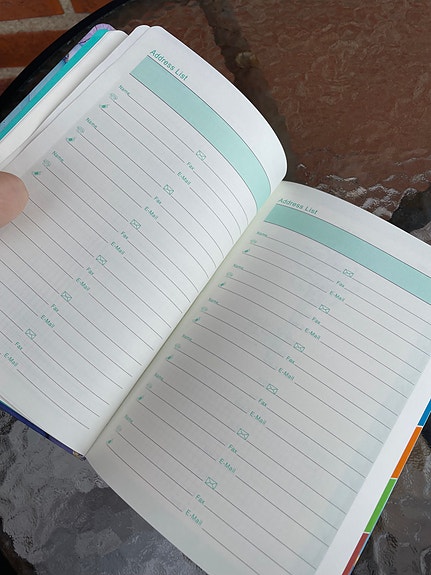 Address List
Name
Fax
E-Mail
Name
Fax
E-Mail
Name
Fax
E-Mail
Fax
E-Mail
Fax
E-Mail
Fax
E-Mail
Address List
Name
Fax
E-Mail
Name
Fax
E-Mail
Name
Fax
E-Mail
Name
Fax
E-Mail
Name
Fax
E-Mail
Name
Fax
E-Mail